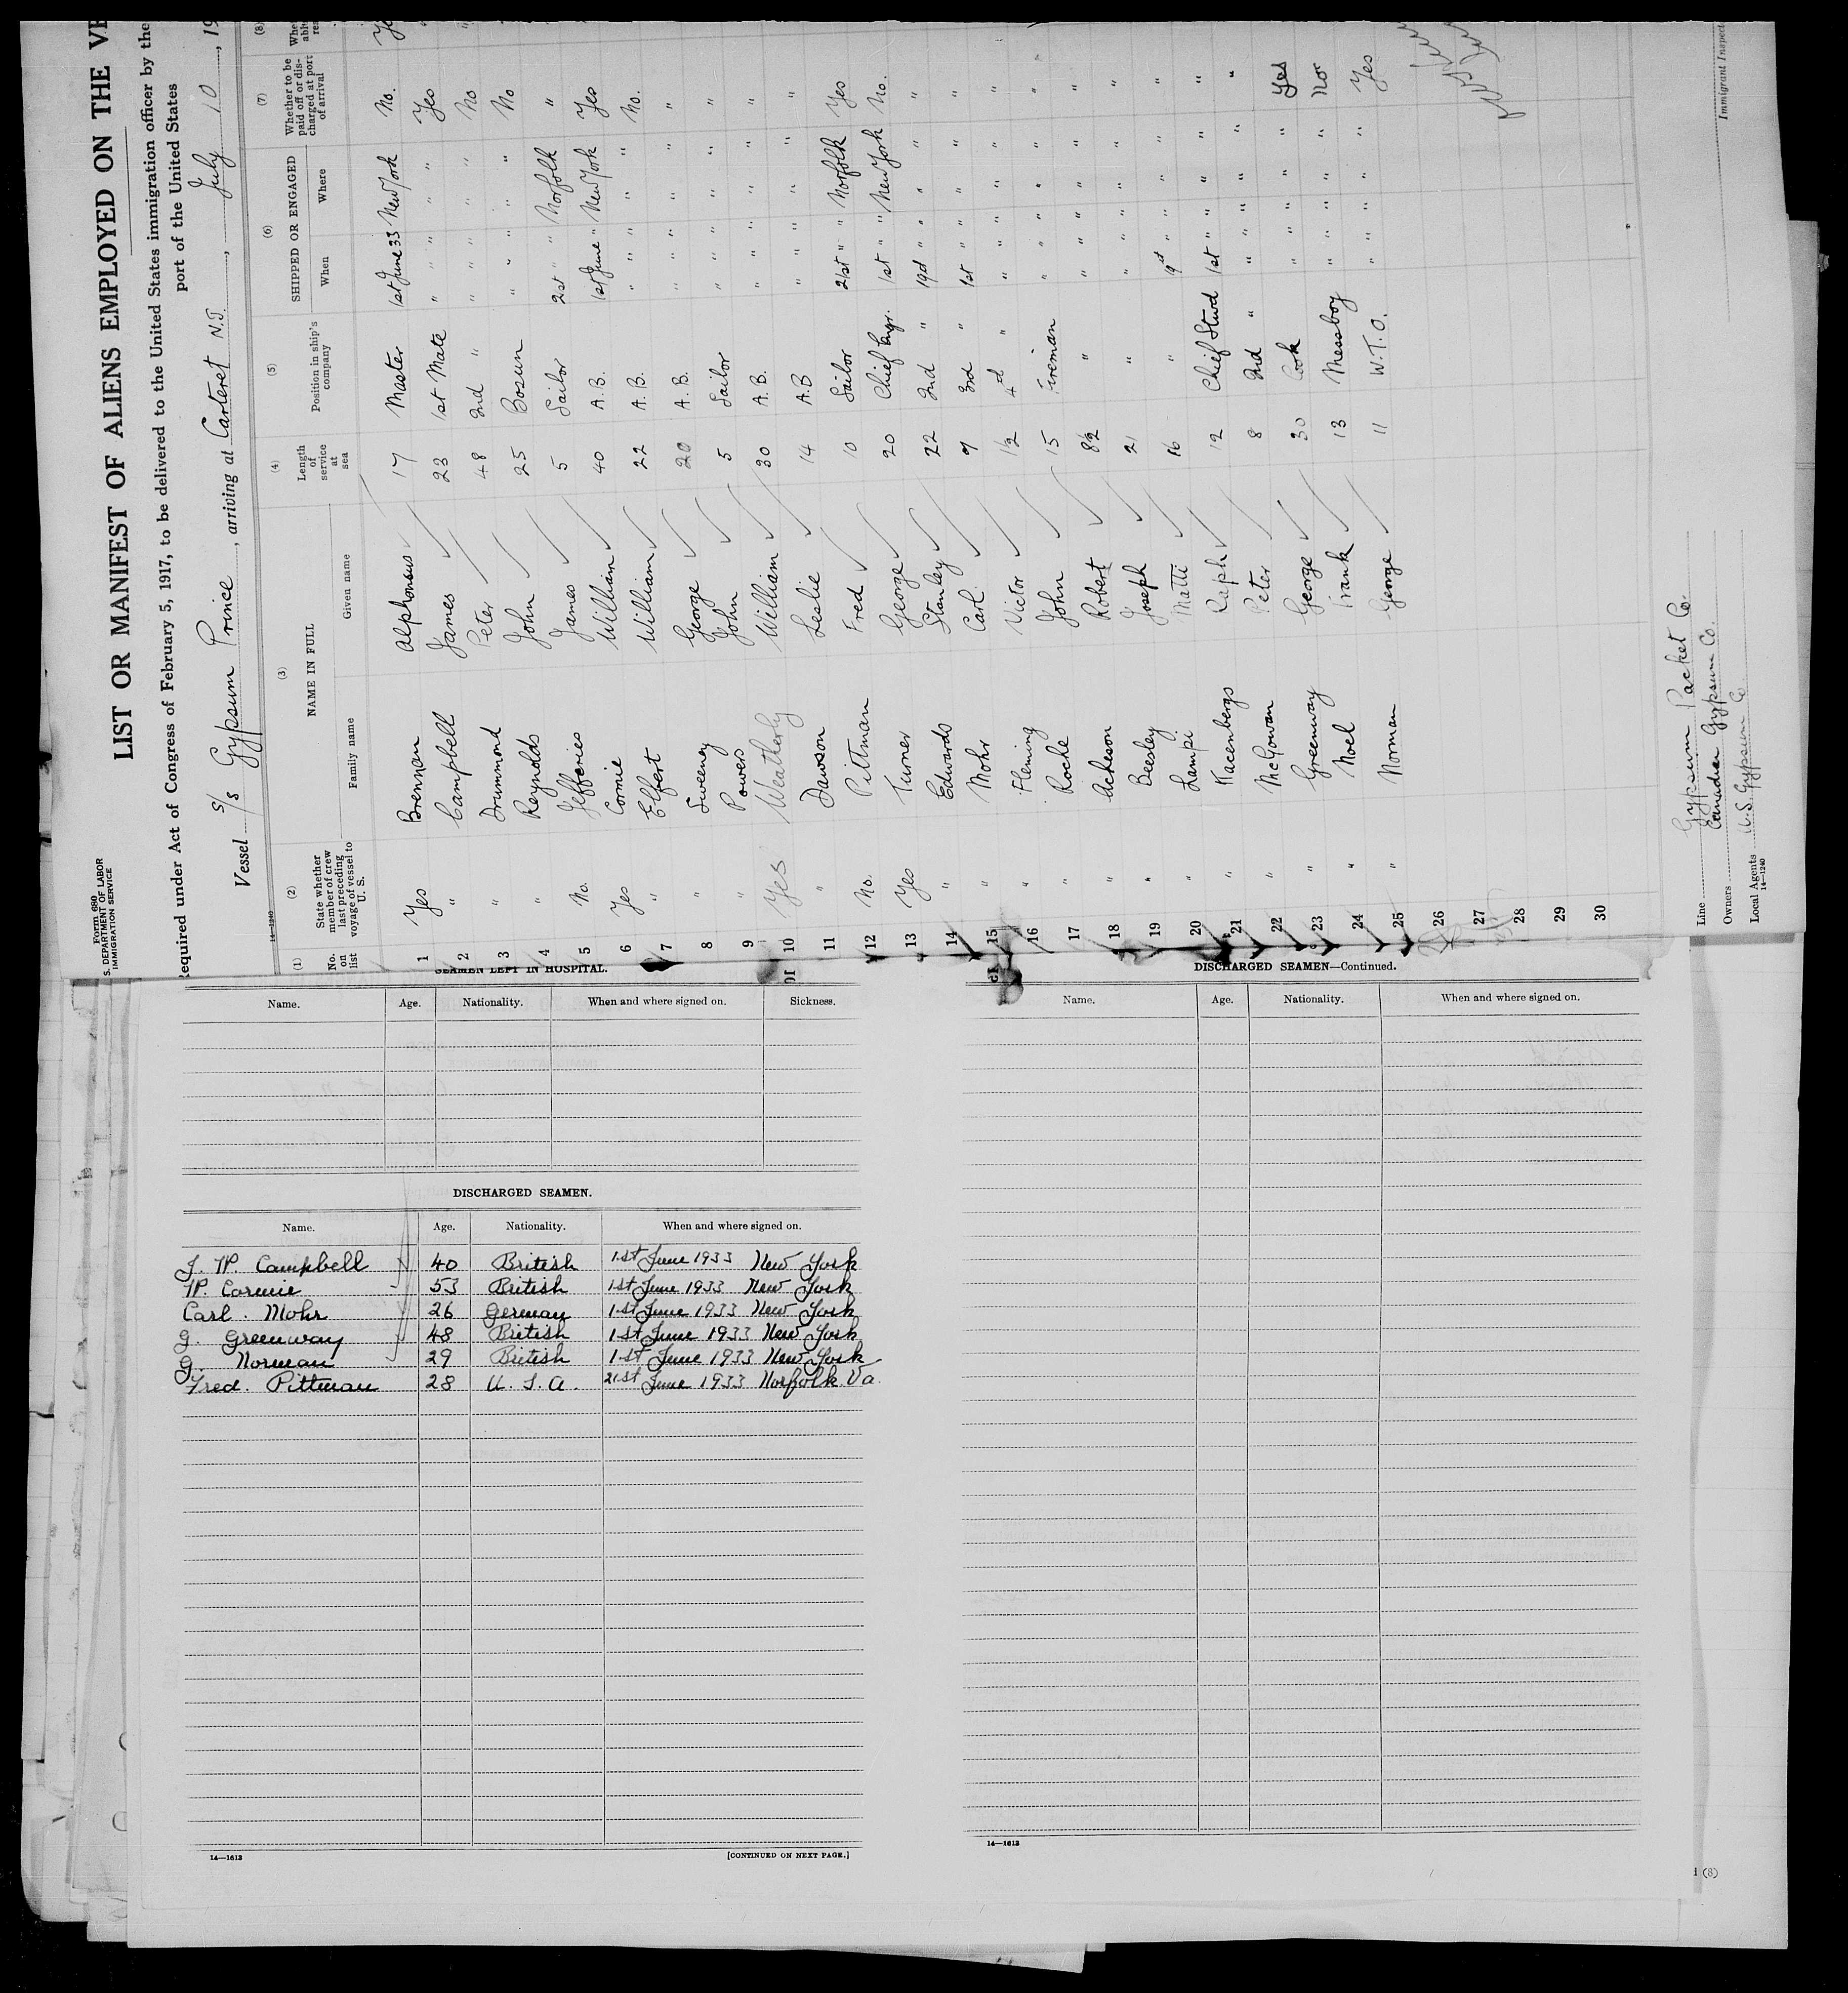 Form 680
S. DEPARTMENT OF LABOR
IMMIGRATION SERVICE
LIST OR MANIFEST OF ALIENS EMPLOYED ON THE
Required under Act of Congress of February 5, 1917, to be delivered to the United States immigration officer by the
port of the United States
Vessel S/S Gypsum Prince, arriving at Carteret N.J., July 10, 19
14—1240
(1) (2) (3) (4) (5) (6) (7) (8)
No. on list
State whether member of crew last preceding voyage of vessel to U. S.
NAME IN FULL
Family name Given name
Length of service at sea
Position in ship's company
SHIPPED OR ENGAGED
When Where
Whether to be paid off or discharged at port of arrival
1 Yes Brennan Alphonsus 17 Master 1st June 33 New York No.
2 " Campbell James 23 1st Mate " " " " Yes
3 " Drummond Peter 48 2nd " " " " " No
4 " Reynolds John 25 Bosun " " " " No
5 No. Jefferies James 5 Sailor 21st " " Norfolk "
6 Yes Cormie William 40 A.B. 1st June " New York Yes
7 " Elfert William 22 A.B. " " " " No.
8 " Sweeney George 20 A.B. " " " " "
9 " Powers John 5 Sailor " " " " "
10 Yes Weatherly William 30 A.B. " " " " "
11 " Dawson Leslie 14 A.B " " " " "
12 No. Pittman Fred 10 Sailor 21st " " Norfolk Yes
13 Yes Turner George 20 Chief Engr. 1st " " New York No.
14 " Edwards Stanley 22 2nd " 19d " " " " "
15 " Mohr Carl 7 3rd " 1st " " " " "
16 " Fleming Victor 1½ 4th " " " " " "
17 " Roche John 15 Fireman " " " " "
18 " Acheson Robert 8½ " " " " " "
19 " Beesley Joseph 21 " " " " " "
20 " Lampi Matti 16 " 9th " " " " "
21 " Hacenbergs Ralph 12 Chief Stwd 1st " " " " "
22 " McGowan Peter 8 2nd " " " " " " "
23 " Greenway George 30 Cook " " " " " Yes
24 " Noel Frank 13 Messboy " " " " " No
25 " Norman George 11 W.T.O. " " " " " Yes
26
27
28
29
30
Line Gypsum Packet Co.
Owners Canadian Gypsum Co.
Local Agents U.S. Gypsum Co.
14—1240
Immigrant Inspect
SEAMEN LEFT IN HOSPITAL.
Name. Age. Nationality. When and where signed on. Sickness.
DISCHARGED SEAMEN.
Name. Age. Nationality. When and where signed on.
J. W. Campbell 40 British 1st June 1933 New York
W. Cormie 53 British 1st June 1933 New York
Carl. Mohr 26 German 1st June 1933 New York
G. Greenway 48 British 1st June 1933 New York
G. Norman 29 British 1st June 1933 New York
Fred. Pittman 28 U. S. A. 21st June 1933 Norfolk Va.
14—1613
[CONTINUED ON NEXT PAGE.]
DISCHARGED SEAMEN—Continued.
Name. Age. Nationality. When and where signed on.
14—1613